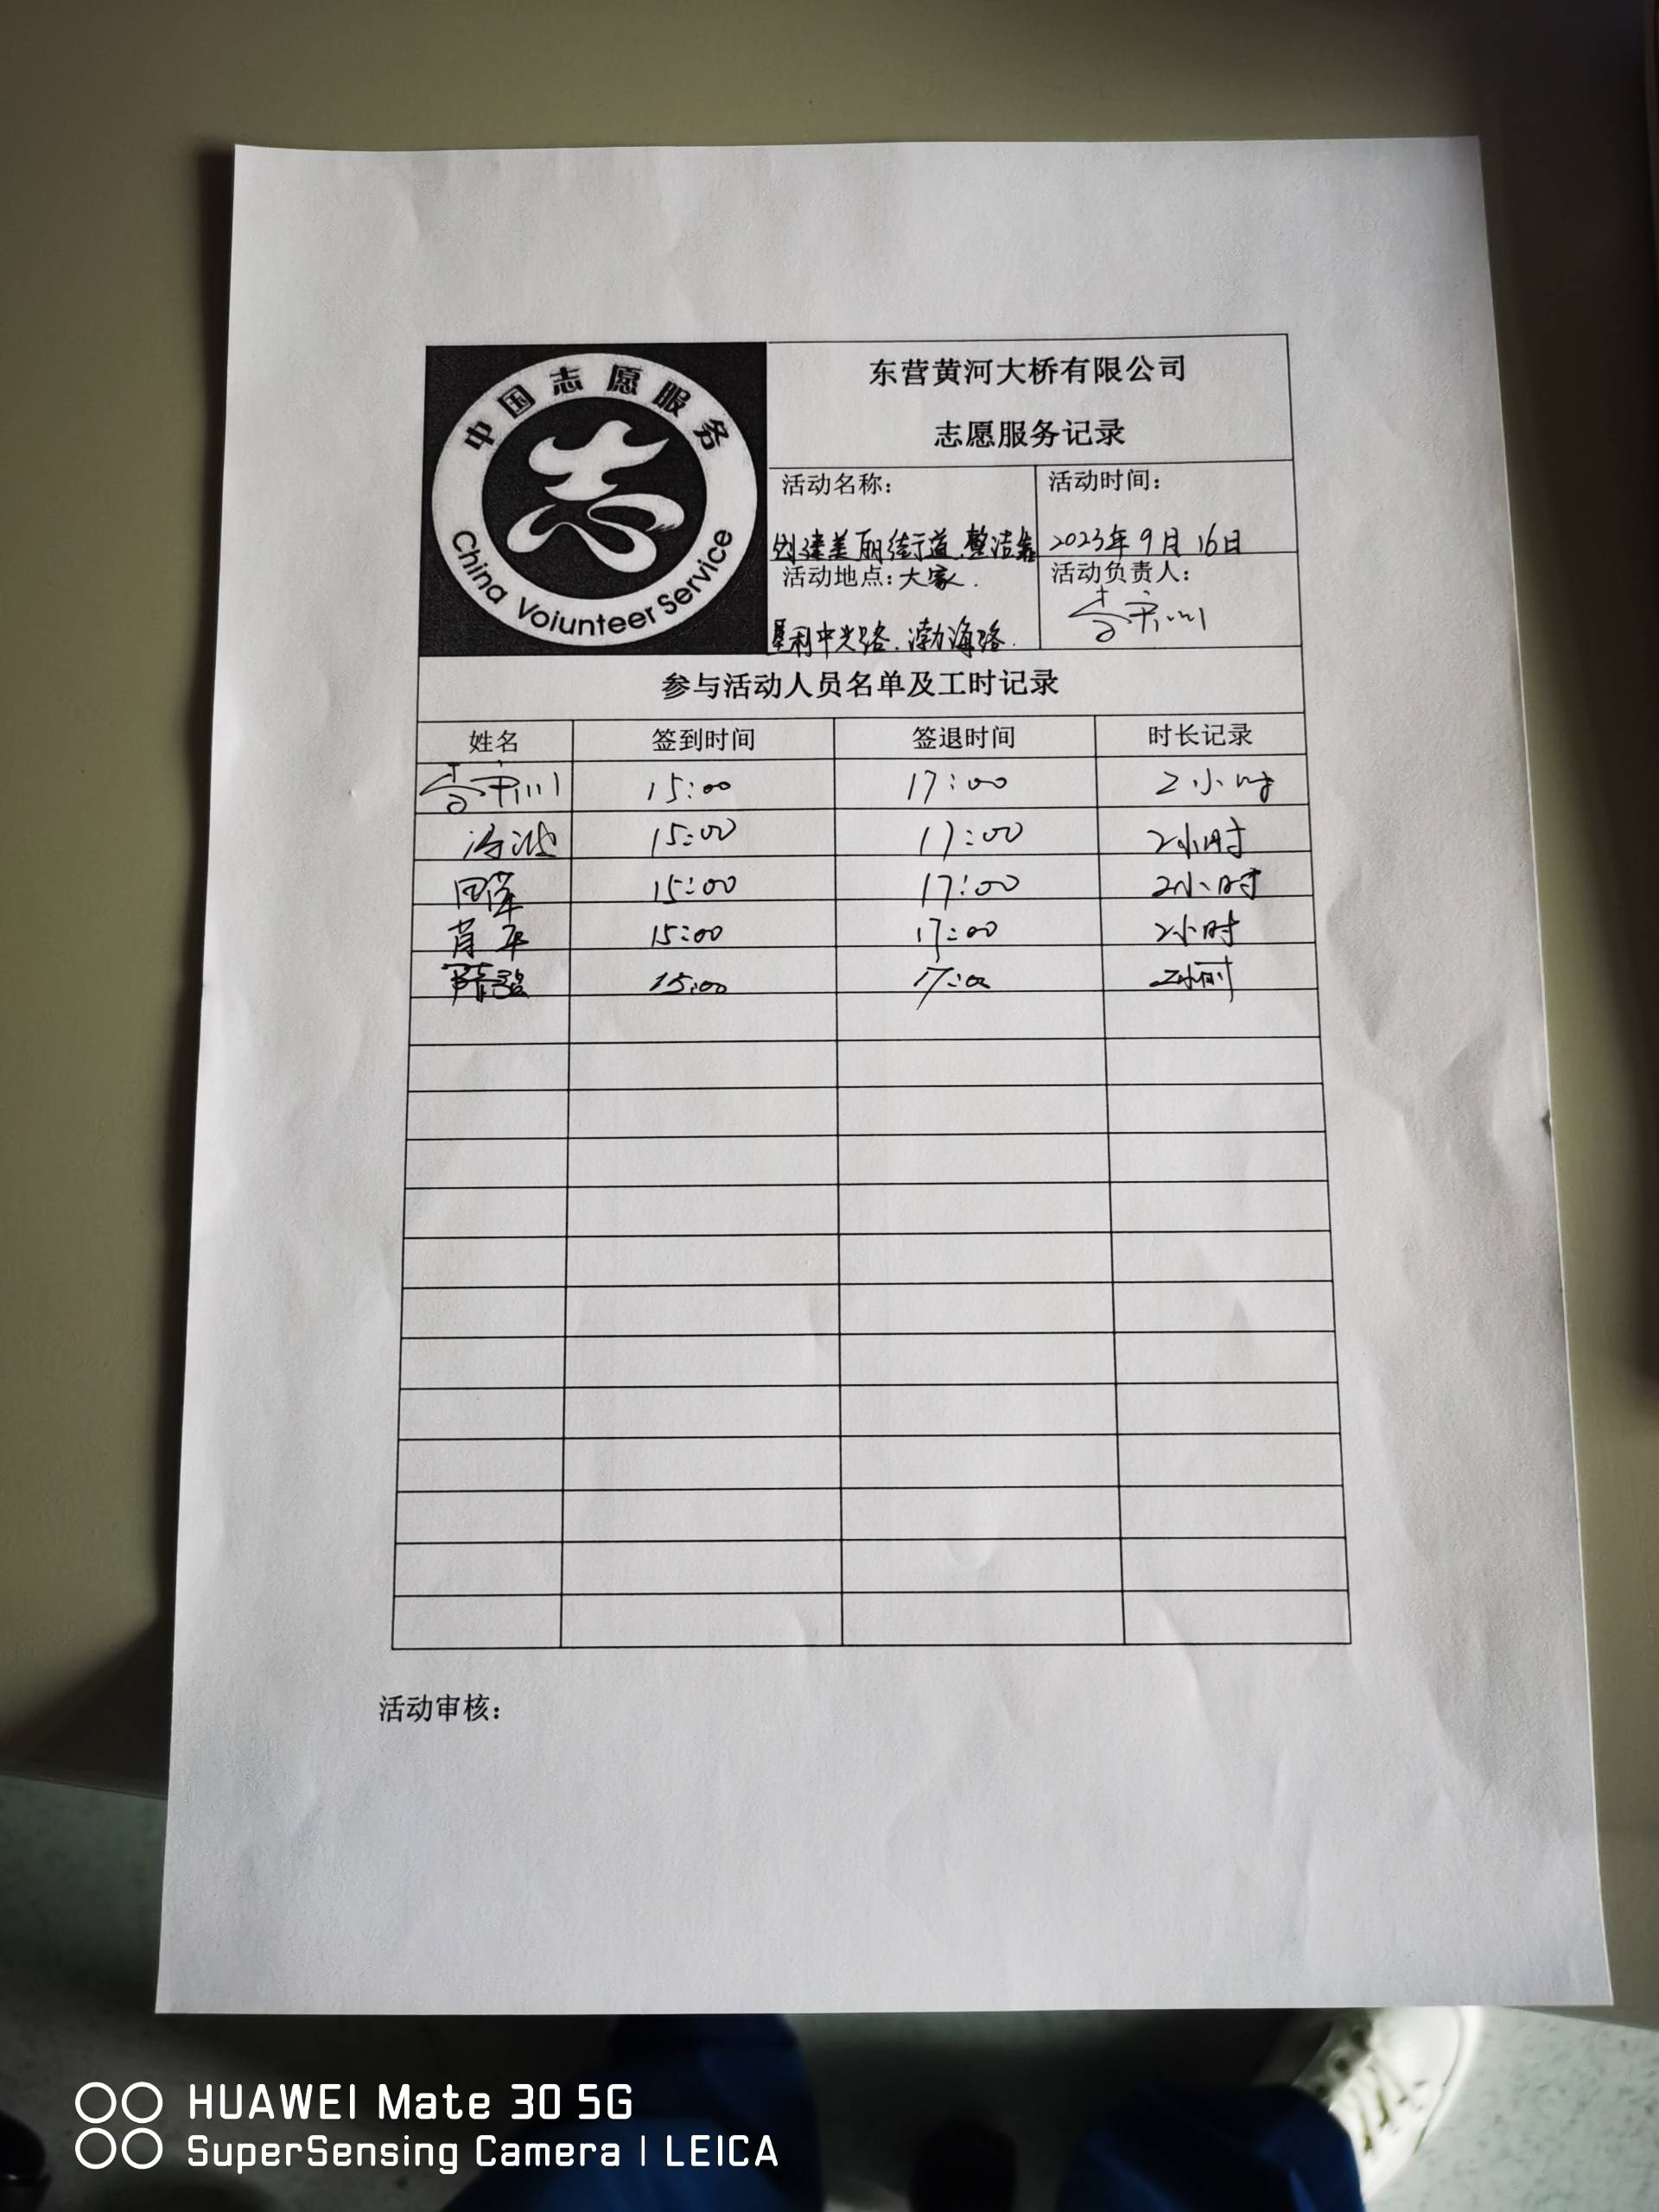 中国志愿服务
China Voiunteer Service
东营黄河大桥有限公司
志愿服务记录
活动名称：
创建美丽街道.整洁靠
大家.
活动时间：
2023年9月16日
活动地点：
垦利中兴路.渤海路.
活动负责人：
参与活动人员名单及工时记录
姓名 签到时间 签退时间 时长记录
15:00 17:00 2小时
15:00 17:00 2小时
15:00 17:00 2小时
肖军 15:00 17:00 2小时
15:00 17:00 2小时
活动审核：
HUAWEI Mate 30 5G
SuperSensing Camera | LEICA